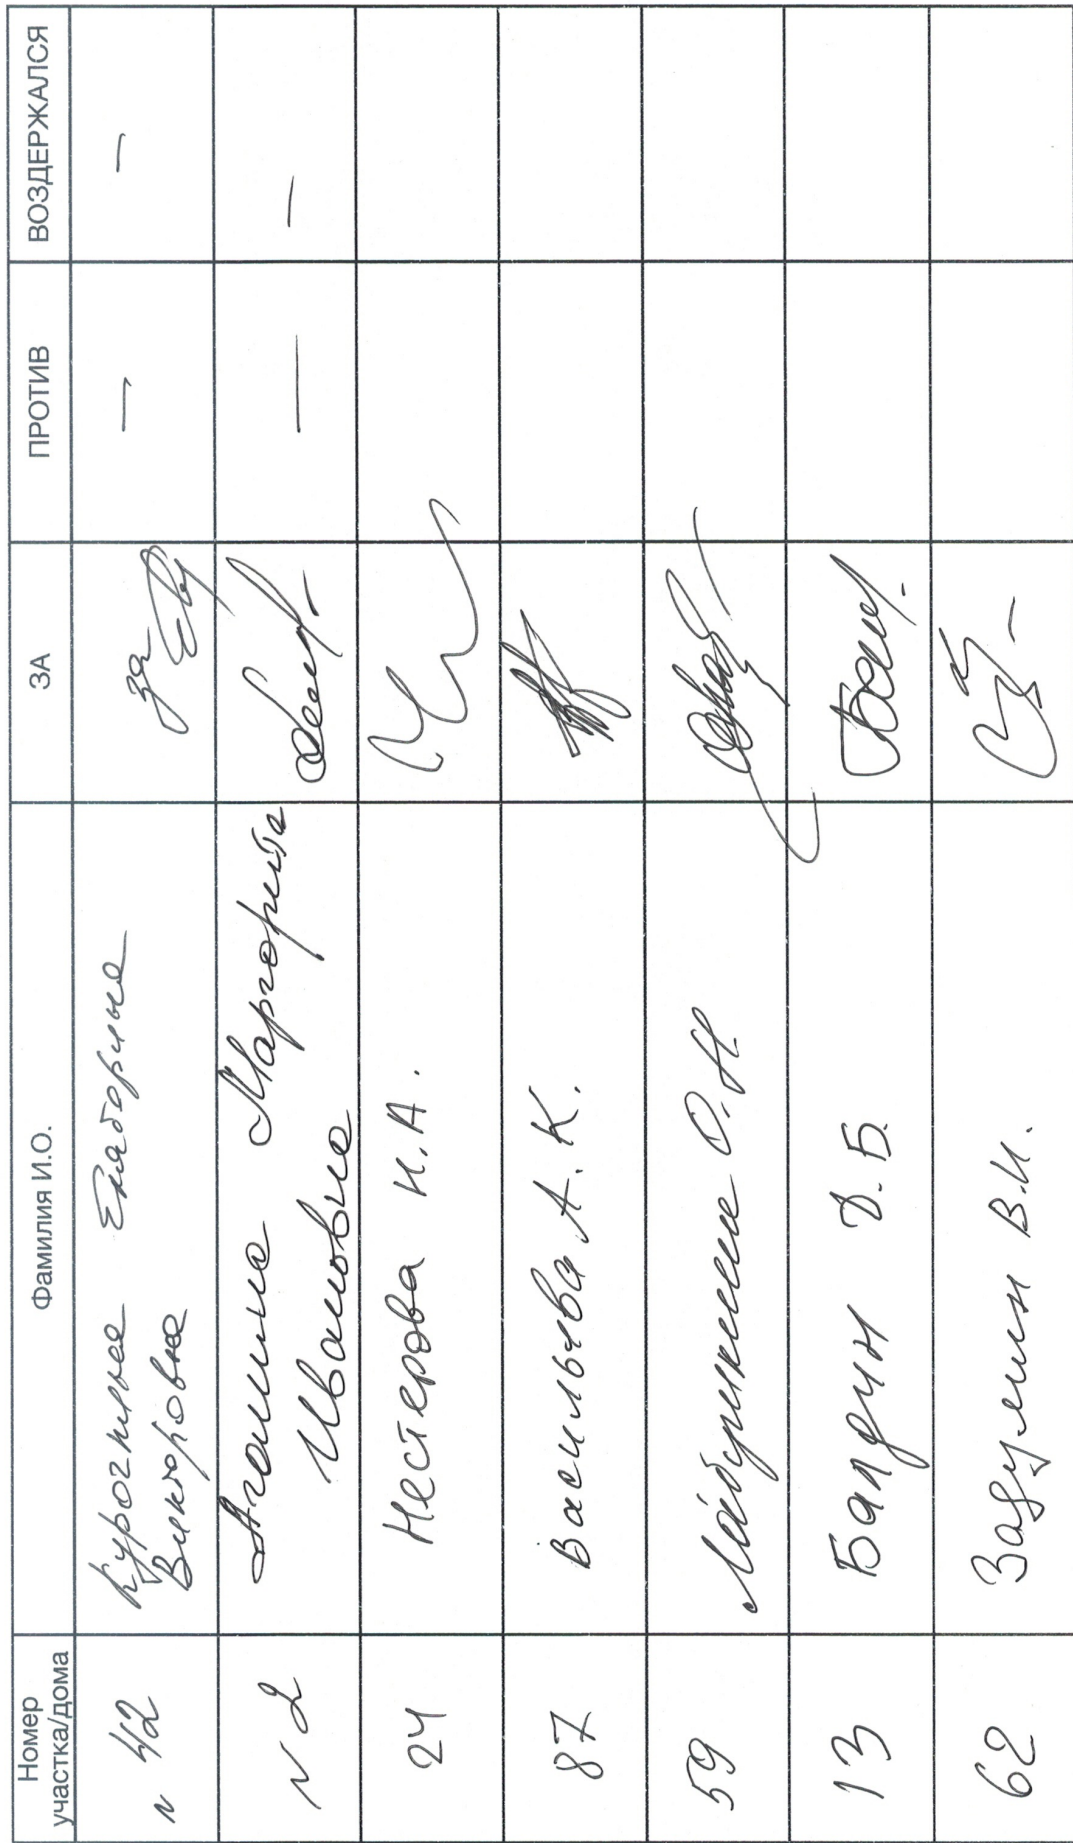 Номер участка/дома Фамилия И.О. ЗА ПРОТИВ ВОЗДЕРЖАЛСЯ
N 42 Курочкина Екатерина за — —
Викторовна
N 2 Агошина Маргарита — —
Ивановна
24 Нестерова Н.А.
87 Васильева А.К.
59 О.Н.
13 Балдин Д.Б.
62 Задумин В.И.